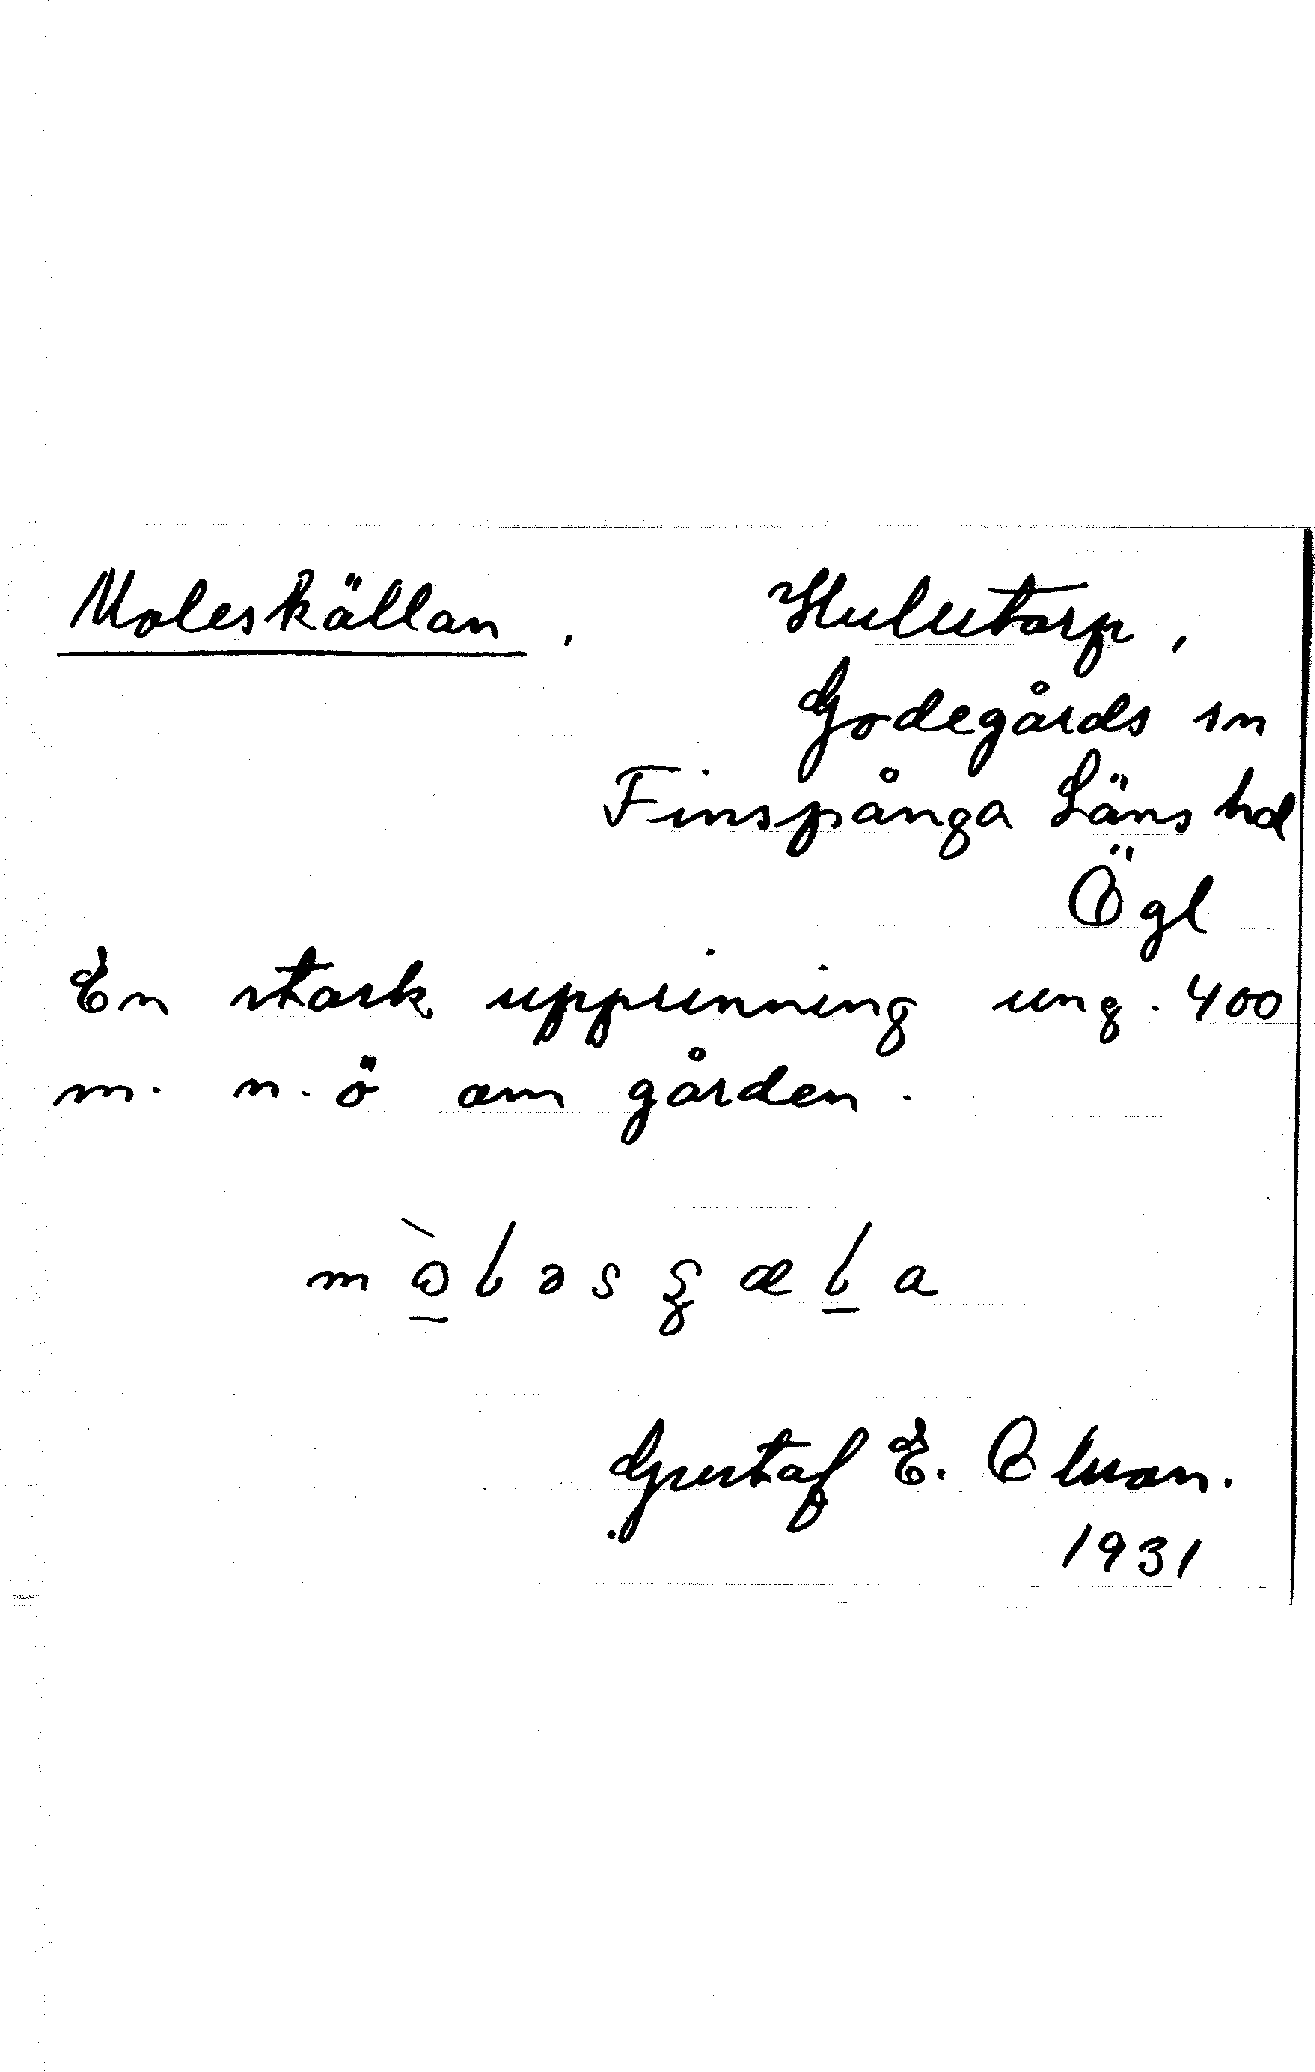 Moleskällan, Hulutorp,
Godegårds sn
Finspånga Läns hd
Ögl
En stark upprinning ung. 400
m. n.ö om gården.
Gustaf E.
1931